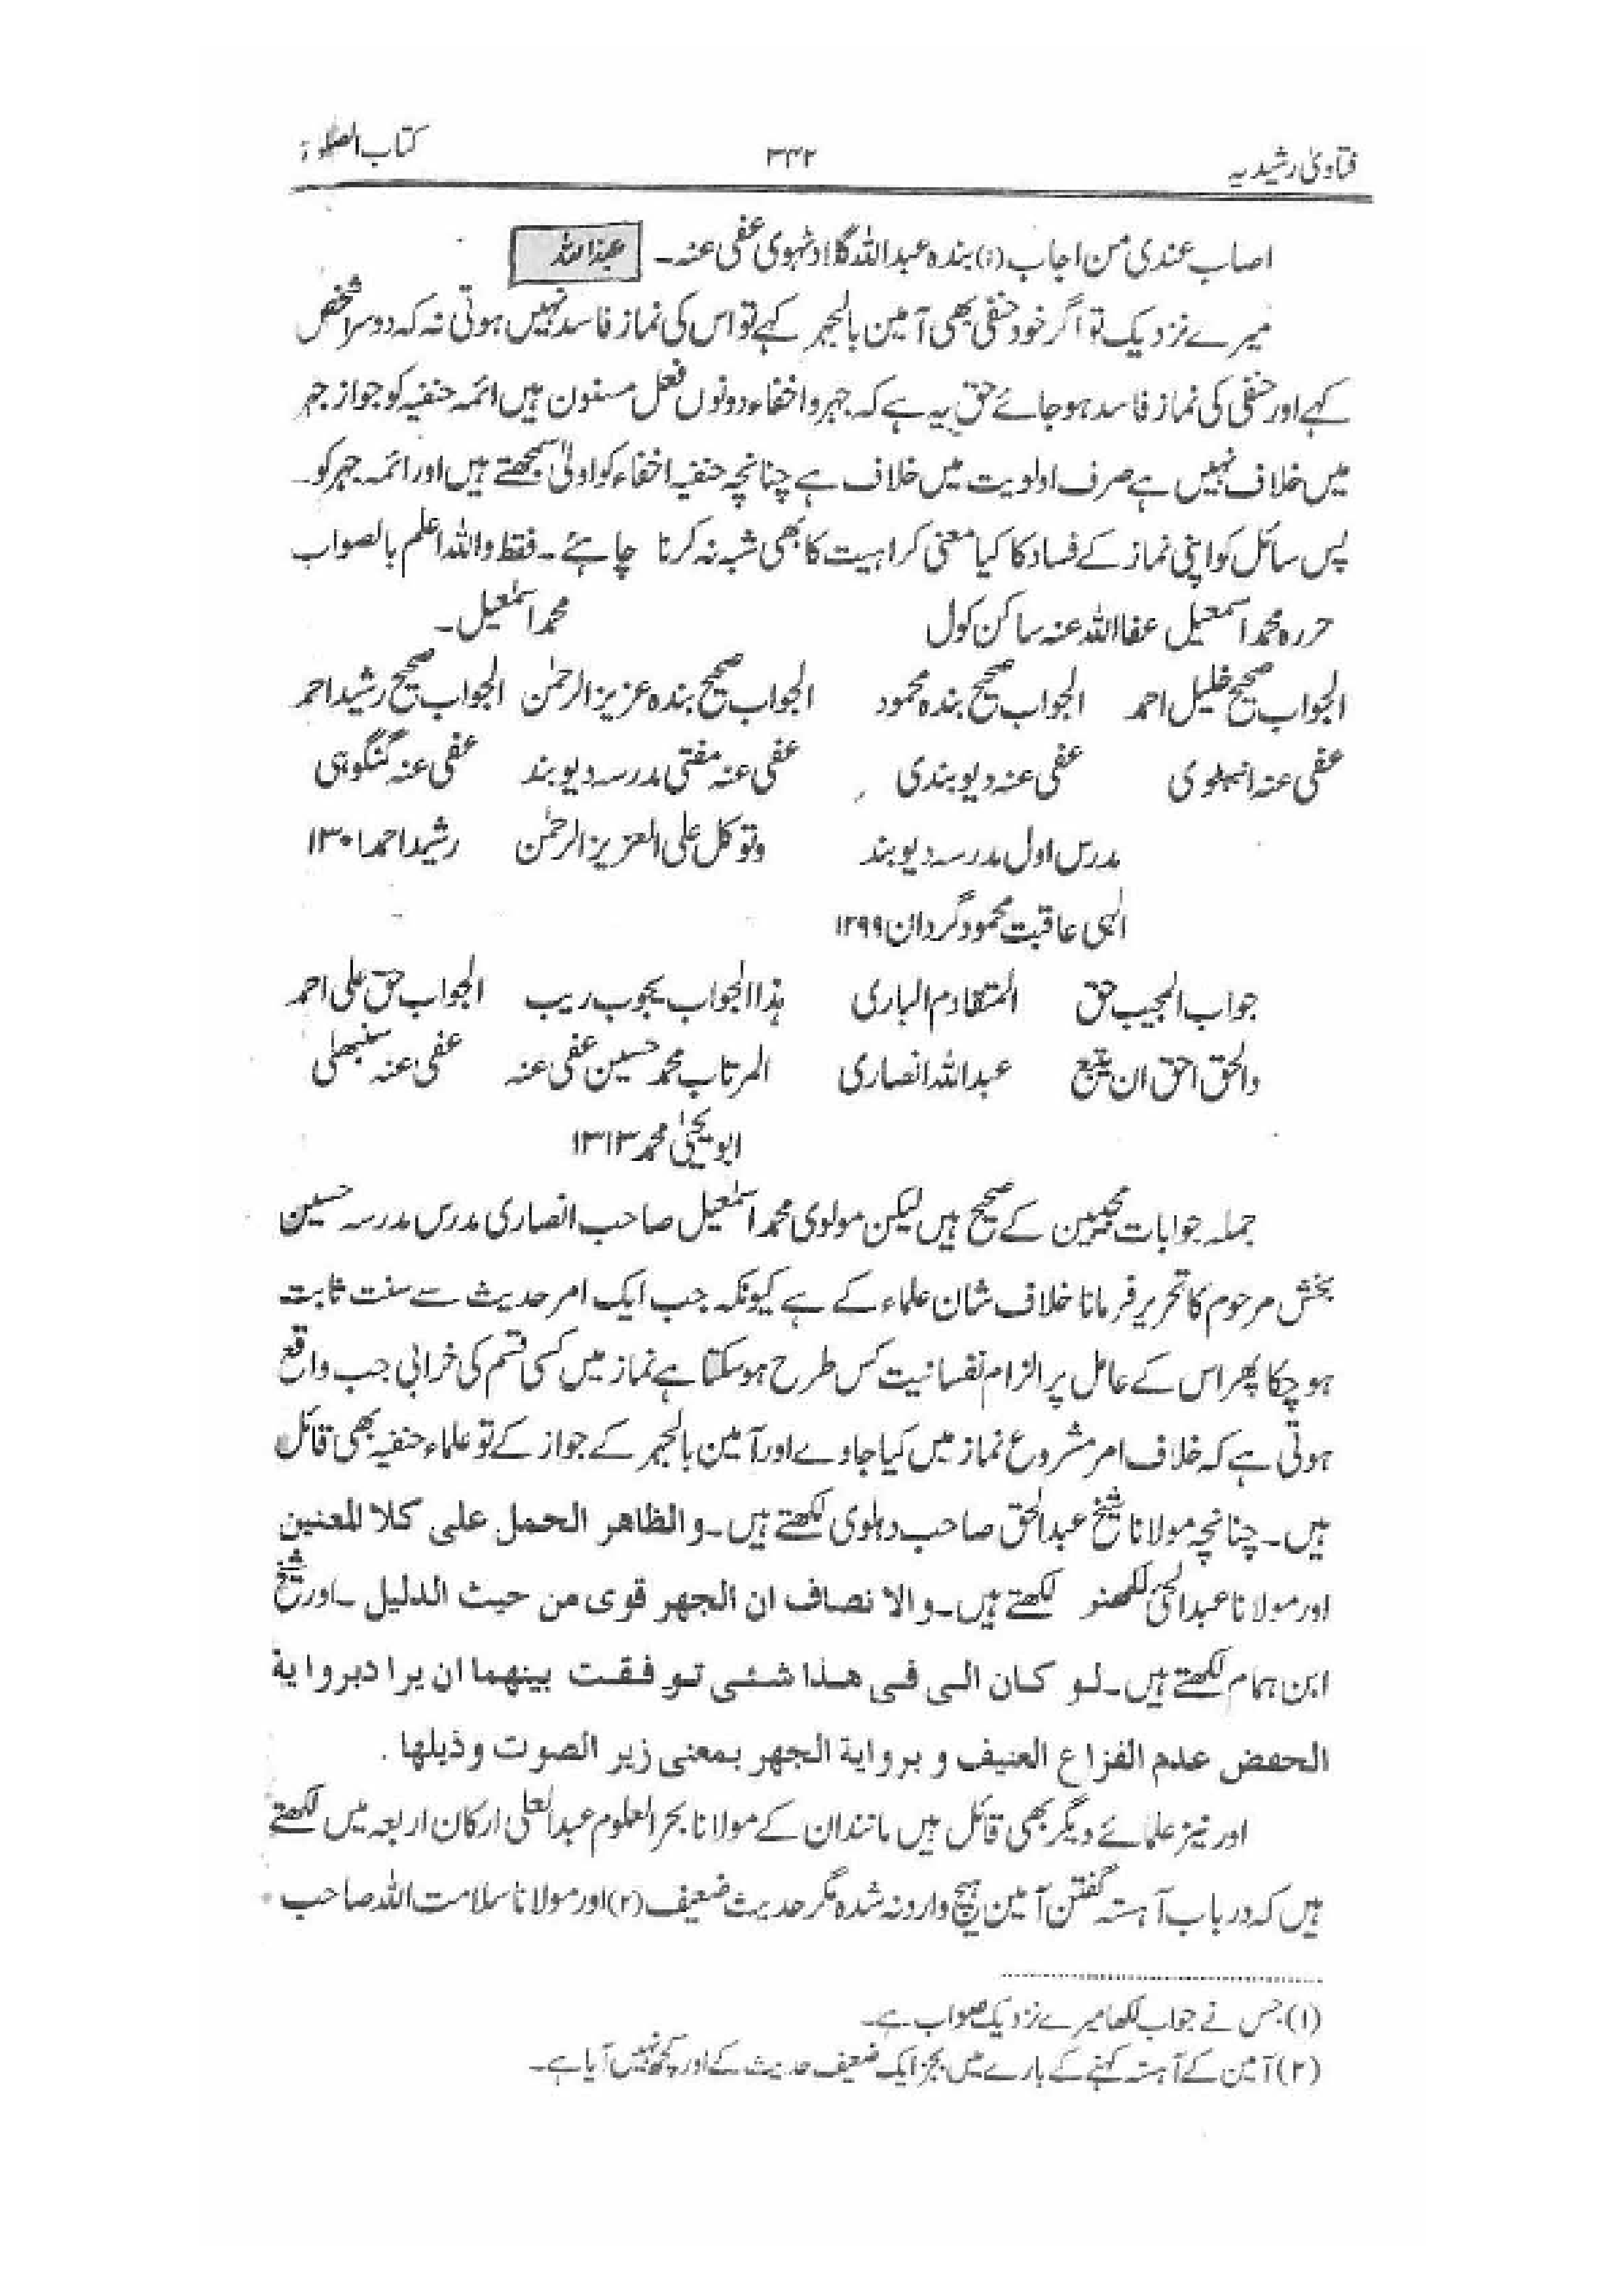 فتاویٰ رشیدیہ ۳۳۲ کتاب الصلوٰۃ
اصاب عندی من اجاب (۱) بندہ عبداللہ گلاادٹہوی عفی عنہ۔ عبداللہ
میرے نزدیک تو اگر خود حنفی بھی آمین بالجہر کہے تو اس کی نماز فاسد نہیں ہوتی نہ کہ دوسرا شخص
کہے اور حنفی کی نماز فاسد ہو جائے حق یہ ہے کہ جہر و اخفاء دونوں فعل مسنون ہیں ائمہ حنفیہ کو جواز جہر
میں خلاف نہیں ہے صرف اولویت میں خلاف ہے چنانچہ حنفیہ اخفاء کو اولیٰ سمجھتے ہیں اور ائمہ جہر کو۔
پس سائل کو اپنی نماز کے فساد کا کیا معنی کراہیت کا بھی شبہ نہ کرنا چاہئے۔ فقط واللہ اعلم بالصواب
حررہ محمد اسمٰعیل عفا اللہ عنہ ساکن کول محمد اسمٰعیل۔
الجواب صحیح خلیل احمد الجواب صحیح بندہ محمود الجواب صحیح بندہ عزیز الرحمٰن الجواب صحیح رشید احمد
عفی عنہ انبہٹوی عفی عنہ دیوبندی عفی عنہ مفتی مدرسہ دیوبند عفی عنہ گنگوہی
مدرس اول مدرسہ دیوبند وتوکل علی العزیز الرحمٰن رشید احمد ۱۳۰۱
الٰہی عاقبت محمود گردان ۱۲۹۹
جواب المجیب حق المتقادم الباری ہذا الجواب یجوب ریب الجواب حق علی احمد
والحق احق ان یتبع عبداللہ انصاری المرتاب محمد حسین عفی عنہ عفی عنہ سنبھلی
ابو یحییٰ محمد ۱۳۱۳
جملہ جوابات مجیبین کے صحیح ہیں لیکن مولوی محمد اسمٰعیل صاحب انصاری مدرس مدرسہ حسین
بخش مرحوم کا تحریر فرمانا خلاف شان علماء کے ہے کیونکہ جب ایک امر حدیث سے سنت ثابت
ہو چکا پھر اس کے عامل پر الزام نفسانیت کس طرح ہو سکتا ہے نماز میں کسی قسم کی خرابی جب واقع
ہوتی ہے کہ خلاف امر مشروع نماز میں کیا جاوے اور آمین بالجہر کے جواز کے تو علماء حنفیہ بھی قائل
ہیں۔ چنانچہ مولانا شیخ عبدالحق صاحب دہلوی لکھتے ہیں۔ والظاهر الحمل على كلا للمعنين
اور مولانا عبدالحئ لکھنو لکھتے ہیں۔ والا نصاف ان الجهر قوى من حيث الدليل ۔اور شیخ
ابن ہمام لکھتے ہیں۔ لو كان الى فى هذا شئى توفقت بينهما ان يرا دبرواية
الحفض عدم الفزاع العنيف و برواية الجهر بمعنى زير الصوت وذيلها .
اور نیز علمائے دیگر بھی قائل ہیں مانند ان کے مولانا بحر العلوم عبدالعلی ارکان اربعہ میں لکھتے
ہیں کہ در باب آہستہ گفتن آمین ہیچ وارد نہ شدہ مگر حدیث ضعیف (۲) اور مولانا سلامت اللہ صاحب
(۱) جس نے جواب لکھا میرے نزدیک صواب ہے۔
(۲) آمین کے آہستہ کہنے کے بارے میں بجز ایک ضعیف حدیث کے اور کچھ نہیں آیا ہے۔